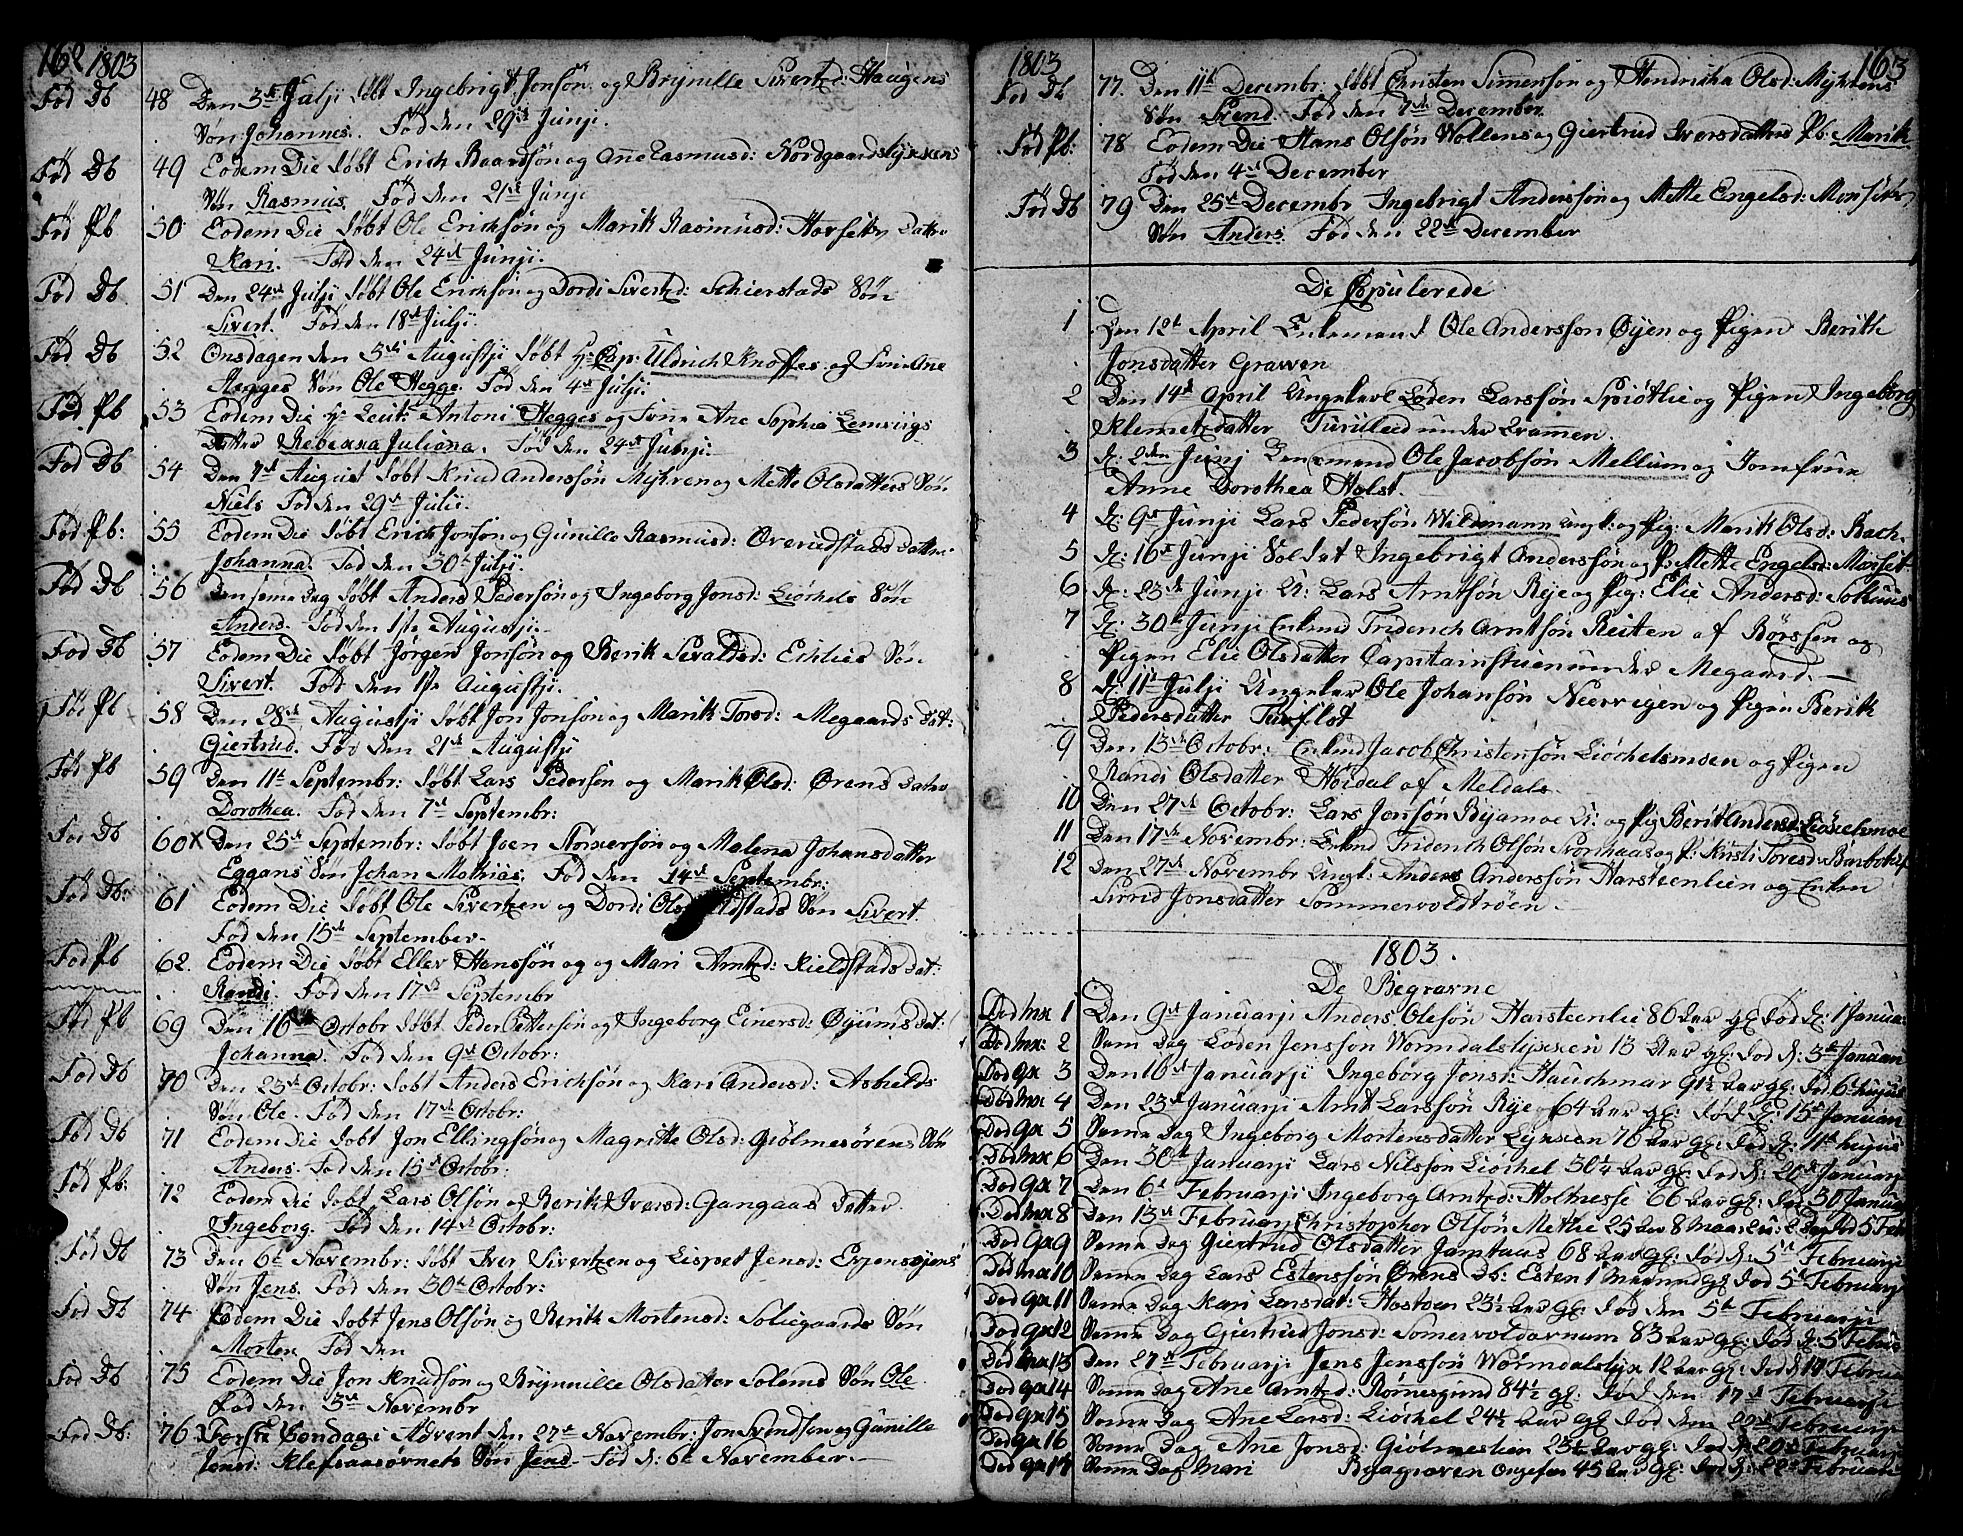 162 1803
Fød Db 48 Den 3die Julji døbt Ingebrigt Jonsøn og Brynille Sivertsd: Haugens
Søn Johannes. Fød den 29de Junji.
Fød Db 49 Eodem Die døbt Erich Baardsøn og Ane Rasmusd:
Søn Rasmus. Fød den 21de Junji
Fød Pb 50 Eodem Die døbt Ole Erichsøn og Marik Rasmusd: Horset Datter
Kari. Fød den 24de Junji.
Fød Db 51 Den 24de Julji døbt Ole Erichsøn og Dordi Sivertsd: Schierstads Søn
Sivert. Fød den 18de Julji.
Fød Db 52 Onsdagen den 3die Augustji døbt Hr Cap: Uldrich Knoffes og Ane
Hegges Søn Ole Hegge. Fød den 4de Julji.
Fød Pb 53 Eodem Die Hr Leut: Antoni Hegges og Ane Sophia Lemvigs
Datter Rebekka Juliana. Fød den 24de Junji.
Fød Db 54 Den 7de August døbt Knud Andersøn Myhren og Mette Olsdatters Søn
Niels Fød den 29de Julii.
Fød Pb: 55 Eodem Die døbt Erich Jonsøn og Gunille Rasmusd: Datter
Johanna. Fød den 30de Julji.
Fød Db 56 Den samme Dag døbt Anders Pedersøn og Ingeborg Jonsd: Liøchels Søn
Anders. Fød den 1ste Augustji.
Fød Db 57 Eodem Die døbt Jørgen Jonsøn og Berik Sivaldsd: Echlies Søn
Sivert. Fød den 1ste Augustji.
Fød Pb 58 Den 28de Augustji døbt Jon Jonsøn og Marik Torsd: Megaards Dat:
Giertrud. Fød den 21de Augustji
Fød Pb 59 Den 11te Septembr: døbt Lars Pedersøn og Marik Olsd: Ørens Datter
Dorothea. Fød den 7de Septembr:
Fød Db 60 x Den 25de Septembr: døbt Joen og Malena Johansdatter
Eggans Søn Johan Mathias. Fød den 14de Septembr:
Fød Db: 61 Eodem Die døbt Ole Sivertzen og Dordi Søn Sivert.
Fød den 15de September.
Fød Pb 62. Eodem Die døbt Eller Hanssøn og og Mari Arntsd: Kieldstads Dat:
Randi. Fød den 17de Septembr
Fød Pb 69 Den 16de Octobr døbt Peder Pettersøn og Ingeborg Einersd: Øyums Dat:
Johanna. Fød den 9de Octobr:
Fød Db 70 Den 23de Octobr: døbt Anders Erichsøn og Kari Andersd: Asbølds
Søn Ole. Fød den 17de Octobr:
Fød Db 71 Eodem Die døbt Jon Ellingsøn og Magritte Olsd: Giølmesørens Søn
Anders. Fød den 15de Octobr:
Fød Pb: 72 Eodem Die døbt Lars Olsøn og Berik Iversd: Gangaas Datter
Ingeborg. Fød den 14de Octobr:
Fød Db 73 Den 6te Novembr: døbt Iver Sivertzen og Lispet Jensd:
Søn Jens. Fød den 30te Octobr:
Fød Db 74 Eodem Die døbt Jens Olsøn og Berik Mortensd: Soliegaards Søn
Morten Fød den
Fød Db 75 Eodem Die Jon Knudsøn og Brynnille Olsdatter Solems Søn Ole
Fød den 3de Novembr
Fød Db: 76 Første Søndag i Advent den 27de Novembr: Jon Svendsøn og Gunille
Jensd: Klefsaasørnets Søn Jens. Fød d: 6te November.
1803 163
Fød Db 77. Den 11te Decembr: døbt Christen Simensøn og Hendricha Olsd: Myhrens
Søn Svend. Fød den 7de December.
Fød Pb: 78 Eodem Die Hans Olsøn Wollens og Giertrud Iversdatters Pb: Marik
Fød den 4de December
Fød Db 79 Den 25de Decembr Ingebrigt Anderssøn og Mette Engelsd: Morsets
Søn Anders. Fød den 22de December
De Copulerede
1 Den 12te April Enkemand Ole Anderssøn Øyen og Pigen Berith
Jonsdatter Grawen
2 Den 14de April Ungekarl Loden Larssøn Spiøtlie og Pigen Ingeborg
Klemetzdatter under Grammen.
3 D: 2den Junj Ole Jacobsøn Mellum og Jomfrue
Anne Dorothea Holst.
4 D: 9de Junji Lars Pedersøn Wildmann Ungk: og Pig: Marik Olsd: Bach.
5 D: 16de Junji Soldat Ingebrigt Anderssøn og P: Mette Engelsd: Morset.
6 D: 23de Junji U: Lars Arntsøn Rye og Pig: Elie Andersd: Solhuus
7 D: 30te Junji Enkmd Friderich Arntsøn Reiten af Børssen og
Pigen Elie Olsdatter Capitainstuen under Megaard.
8 D: 11te Julji Ungekar Ole Johansøn Neervigen og Pigen Berik
Pedersdatter
9 Den 13de Octobr: Enkmd Jacob Christensøn Liøchelsmoen og Pigen
Randi Olsdatter Høidal af Meldals.
10 Den 27de Octobr: Lars Jonsøn Byamoe U: og Pig Berit Andersd: Liøchelmoe
11 Den 17de Novembr: Enkmd Friderich Olsøn og P: Kirsti Toresd:
12 Den 27de Novembr Ungk: Anders Anderssøn Harsteenlien og Enken
Sirrid Jonsdatter Sommervoldtrøen.
1803.
De Begravne
Død mk 1 Den 9de Januarji Anders Olesøn Harsteenlie 86 Aar gl: død d: 1 Januar
Død mk: 2 Samme Dag Loden Jenssøn Wormdalslyxen 13 Aar gl: død d: 3de Januari
Død qk 3 Den 16de Januarji Ingeborg Jonsd: Hauchmar 91½ Aar gl: død 6te hujus
Død mk 4 Den 23de Januarji Arnt Larssøn Rye 64 Aar gl: død d: 15de Januari
Død qk 5 Samme Dag Ingeborg Mortensdatter Lyxsen 76 Aar gl: død d: 11te hujus
Død mk 6 Den 30te Januarji Lars Nilssøn Liøchel 30½ Aar gl: død d: 20de Januarji
Død qk 7 Den 6te Februarji Ingeborg Arntzd: Holtnesse 66 Aar gl: død 30 Januar
Død mk 8 Den 13de Februarj Christopher Olsøn Metlie 25 Aar 8 Maaneder 2 Dage død 5 Feb
Død qk 9 Samme Dag Giertrud Olsdatter Jamtaas 68 Aar gl: død d: 5te Februarji
Død mk 10 Samme Dag Lars Estenssøn Ørens Db: Esten 1 Maaned gl død 5te Februarji
Død qk 11 Samme Dag Kari Larsdat: Hostoen 23½ Aar gl: død den 5te Februarji
Død qk 12 Samme Dag Giertrud Jonsd: 83 Aar gl: død d: 5 Februa
Død mk 13 Den 27de Februarji Jens Jenssøn Wormdalslyx 12 Aar gl: død d: 17 Februa
Død qk 14 Samme Dag Ane Arntsd: Rønesgrind 84½ gl: død den 17de Februarji
Død qk 15 Samme Dag Ane Larsd: Liøchel 24½ Aar gl død den 22de Februarji
Død qk 16 Samme Dag Ane Jonsd: Giølmeslien 23½ Aar gl: død d: 20de Februarji
Død qk 17 Samme Dag Mari Byagraven ongefer 45 Aar gl: død d: 22de Februarji